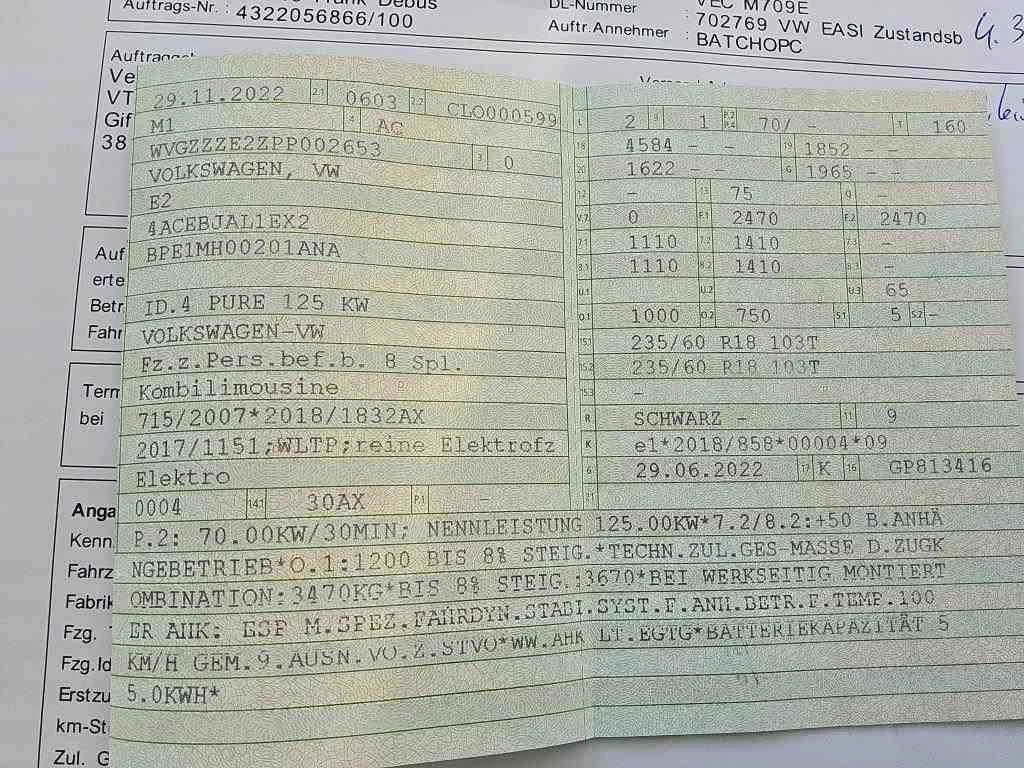 Auftrags-Nr. : 4322056866/100
DL-Nummer
VEC M709E
Auftr.Annehmer : 702769 VW EASI Zustandsb
BATCHOPC
4.3
Ve
VT
Gif
38
Auf
erte
Betr
Fahr
Term
bei
Anga
Kenn
Fahrz
Fabrik
Fzg.
Fzg.Id
Erstzu
km-St
Zul. G
29.11.2022 2.1 0603 2.2 CLO000599
M1 4 AC
WVGZZZE2ZPP002653 3 0
VOLKSWAGEN, VW
E2
4ACEBJAL1EX2
BPE1MH00201ANA
ID.4 PURE 125 KW
VOLKSWAGEN-VW
Fz.z.Pers.bef.b. 8 Spl.
Kombilimousine
715/2007*2018/1832AX
2017/1151;WLTP;reine Elektrofz
Elektro
0004 14.1 30AX P.1 -
L 2 9 1 P.2 P.4 70/ - T 160
18 4584 - - 19 1852 - -
20 1622 - - G 1965 - -
12 - 13 75 Q -
V.7 0 F.1 2470 F.2 2470
7.1 1110 7.2 1410 7.3 -
8.1 1110 8.2 1410 8.3 -
U.1 U.2 U.3 65
O.1 1000 O.2 750 S.1 5 S.2 -
15.1 235/60 R18 103T
15.2 235/60 R18 103T
15.3 -
R SCHWARZ - 11 9
K e1*2018/858*00004*09
6 29.06.2022 17 K 16 GP813416
21
P.2: 70.00KW/30MIN; NENNLEISTUNG 125.00KW*7.2/8.2:+50 B.ANHÄ
NGEBETRIEB*O.1:1200 BIS 8% STEIG.*TECHN.ZUL.GES-MASSE D.ZUGK
OMBINATION:3470KG*BIS 8% STEIG.:3670*BEI WERKSEITIG MONTIERT
ER AHK: ESP M.SPEZ.FAHRDYN.STABI.SYST.F.ANH.BETR.F.TEMP.100
KM/H GEM.9.AUSN.VO.Z.STVO*WW.AHK LT.EGTG*BATTERIEKAPAZITÄT 5
5.0KWH*